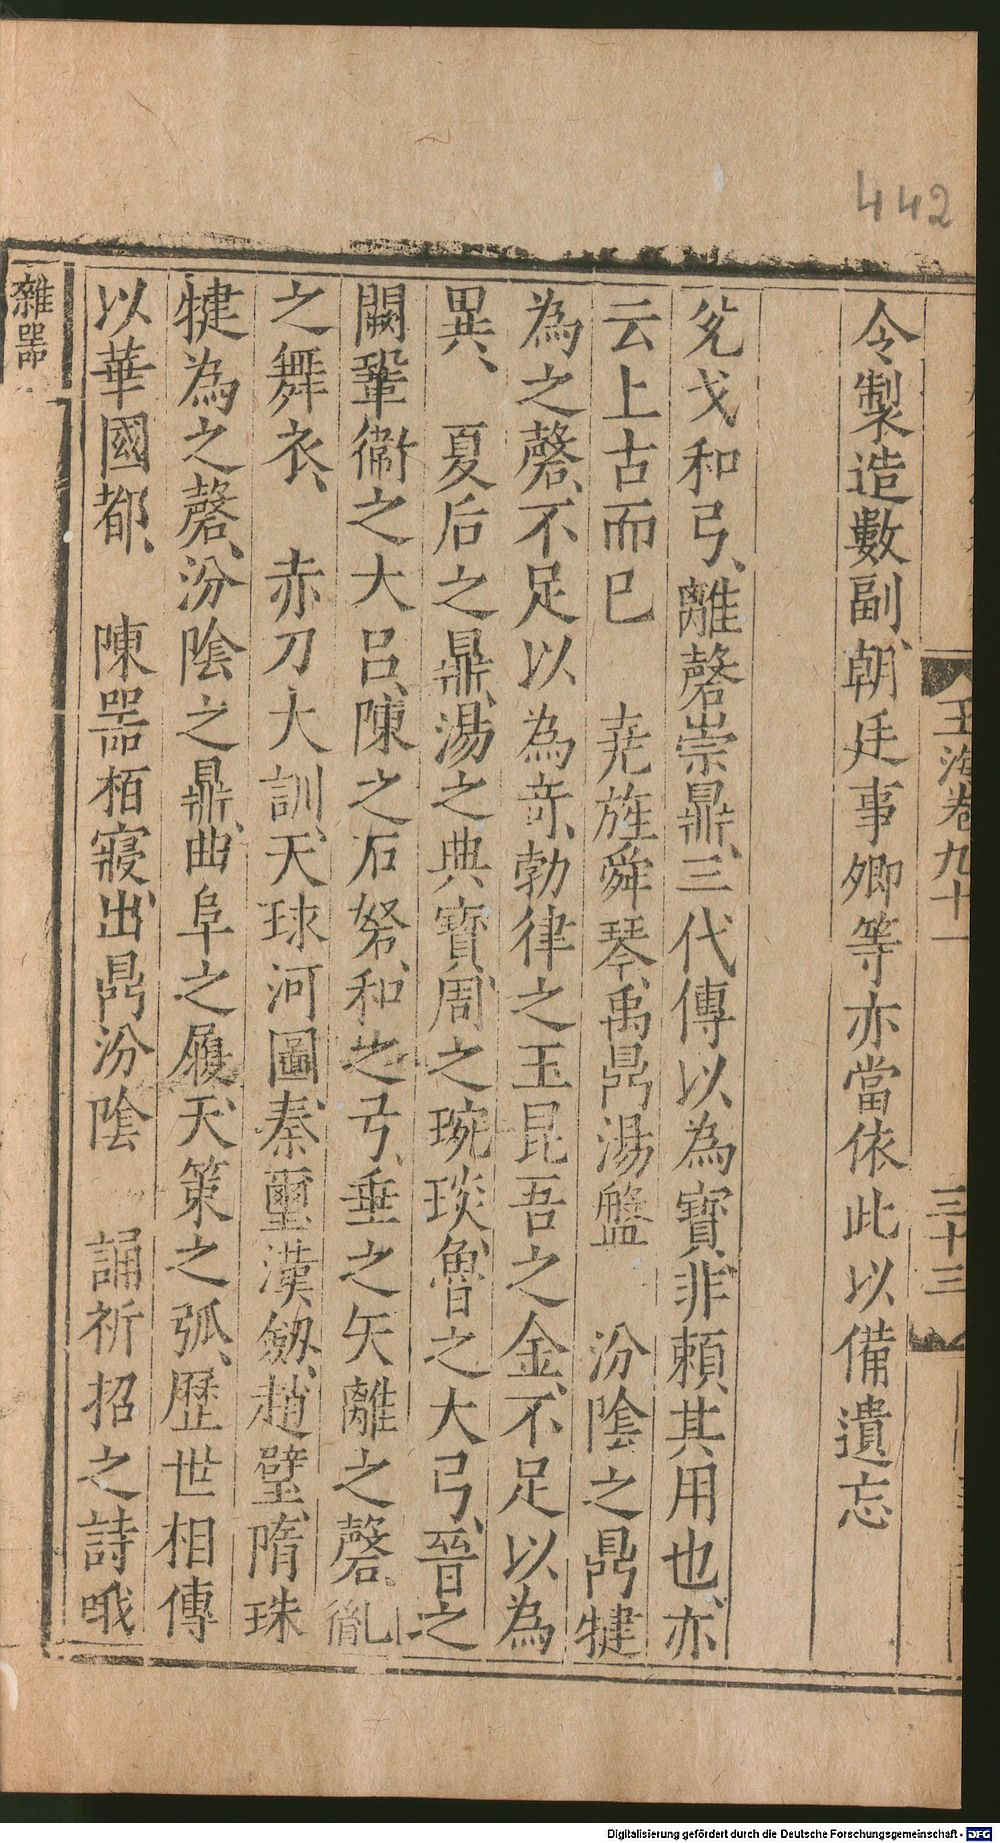 442
玉海卷九十一
三十三
令製造數副朝廷事卿等亦當依此以備遺忘
兊戈和弓、離磬崇鼎、三代傳以為寶、非頼其用也、亦
云上古而已　堯旌舜琴、禹鼎湯盤　汾陰之鼎犍
為之磬、不足以為奇、勃律之玉昆吾之金、不足以為
異、　夏后之鼎、湯之典寶、周之琬琰、魯之大弓、晉之
闕鞏衞之大呂、陳之石砮、和之弓、垂之矢離之磬、胤
之舞衣、　赤刀大訓、天球河圖、秦璽漢劔、趙璧、隋珠
犍為之磬、汾陰之鼎、曲阜之履、天策之弧、歴世相傳
以華國都、　陳器栢寢、出鼎汾陰　誦祈招之詩哦
雜器
Digitalisierung gefördert durch die Deutsche Forschungsgemeinschaft - DFG